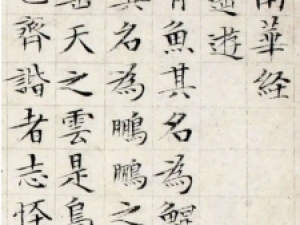 南華経
遥遊
有魚其名為鯤
其名為鵬鵬之
垂天之雲是鳥
也齊諧者志怪